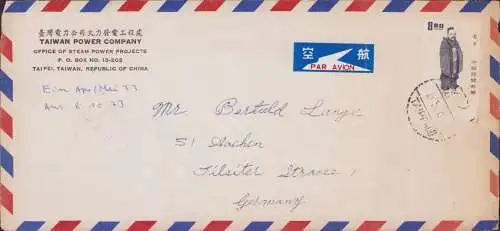 臺灣電力公司火力發電工程處
TAIWAN POWER COMPANY
OFFICE OF STEAM POWER PROJECTS
P. O. BOX NO. 13-202
TAIPEI, TAIWAN, REPUBLIC OF CHINA
空 航
PAR AVION
8.00
73
73
Mr Bertuld Lange
51 Aachen
Tilsiter Strasse 1
Germany